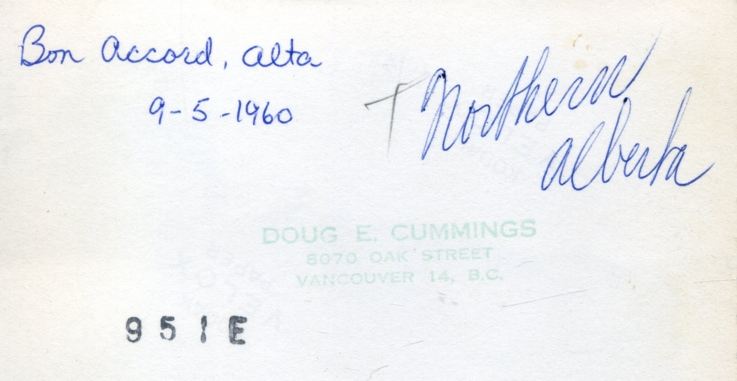 Bon Accord, Alta
9-5-1960
Northern
Alberta
DOUG E. CUMMINGS
8070 OAK STREET
VANCOUVER 14, B.C.
951E